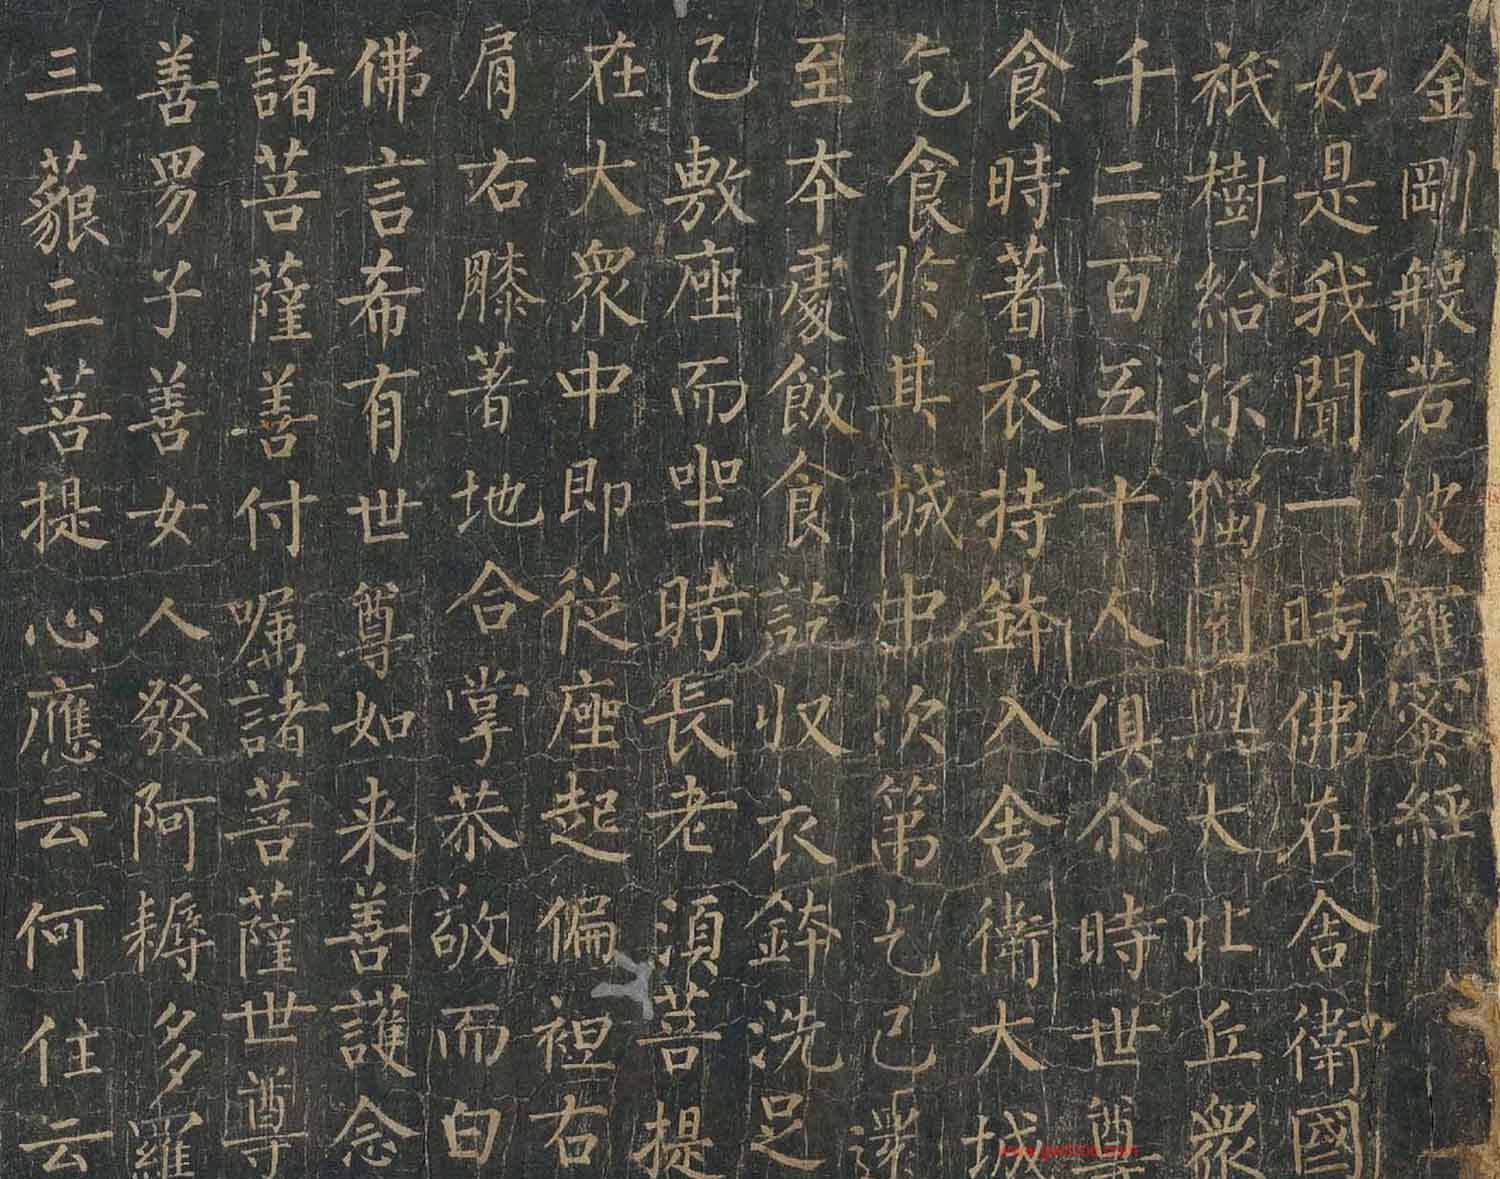 金剛般若波羅蜜經
如是我聞一時佛在舍衛國
祇樹給孤獨園與大比丘衆
千二百五十人俱尒時世尊
食時著衣持鉢入舍衛大城
乞食於其城中次第乞已還
至本處飯食訖収衣鉢洗足
已敷座而坐時長老須菩提
在大衆中即從座起偏袒右
肩右膝著地合掌恭敬而白
佛言希有世尊如来善護念
諸菩薩善付囑諸菩薩世尊
善男子善女人發阿耨多羅
三藐三菩提心應云何住云